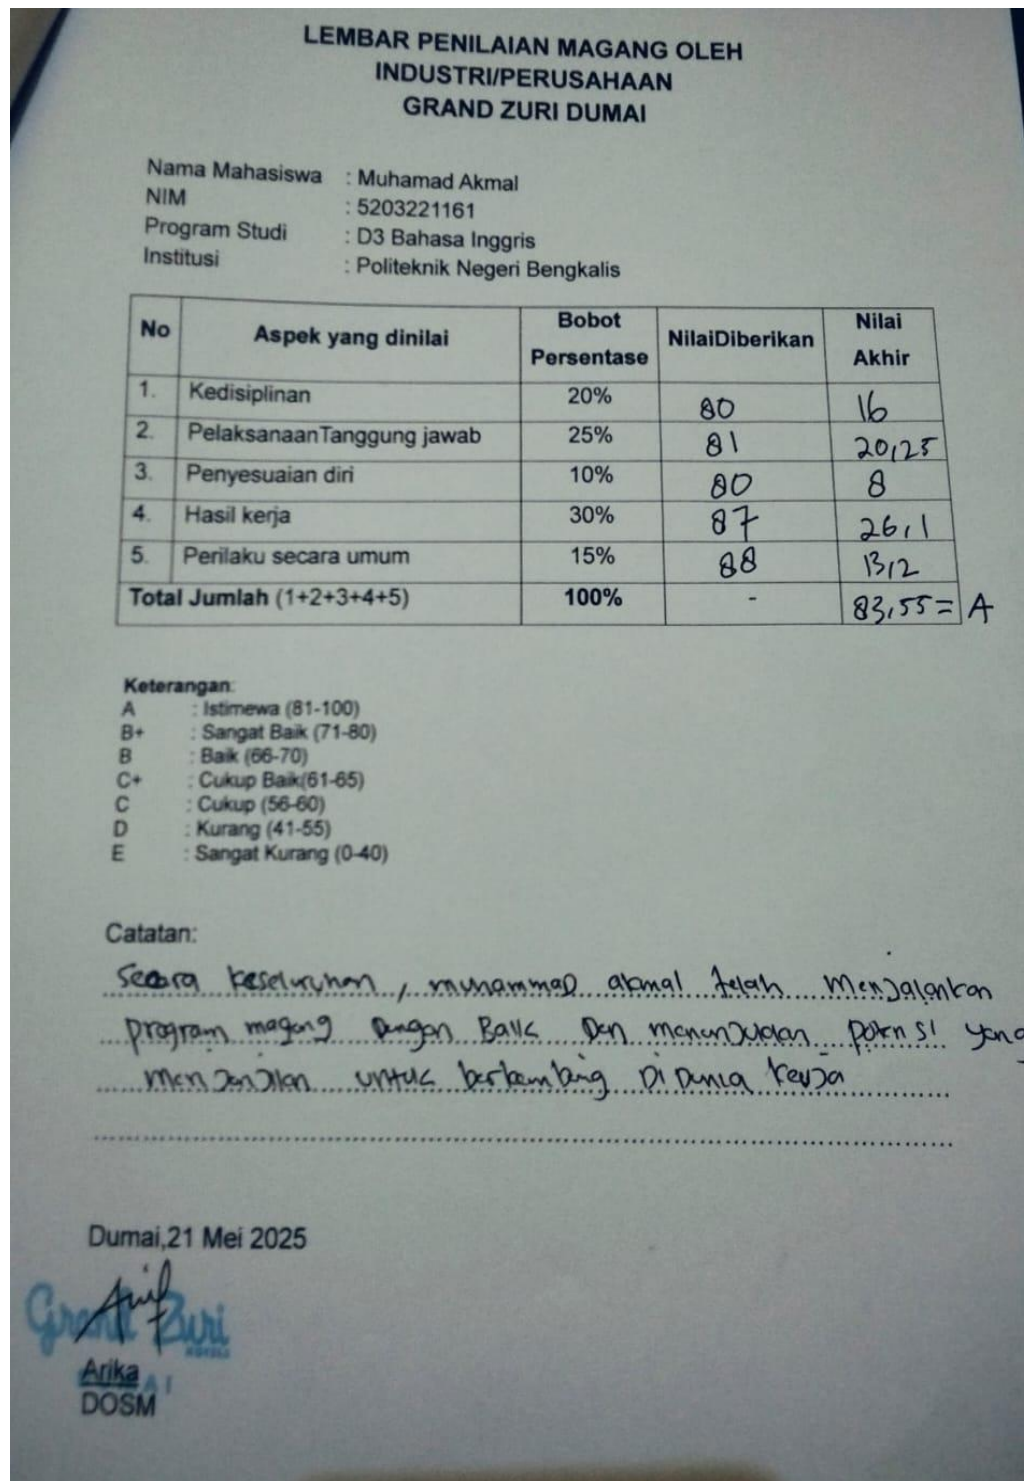 LEMBAR PENILAIAN MAGANG OLEH
INDUSTRI/PERUSAHAAN
GRAND ZURI DUMAI
Nama Mahasiswa : Muhamad Akmal
NIM : 5203221161
Program Studi : D3 Bahasa Inggris
Institusi : Politeknik Negeri Bengkalis
No Aspek yang dinilai Bobot Persentase NilaiDiberikan Nilai Akhir
1. Kedisiplinan 20% 80 16
2. PelaksanaanTanggung jawab 25% 81 20,25
3. Penyesuaian diri 10% 80 8
4. Hasil kerja 30% 87 26,1
5. Perilaku secara umum 15% 88 13,2
Total Jumlah (1+2+3+4+5) 100% - 83,55 = A
Keterangan:
A : Istimewa (81-100)
B+ : Sangat Baik (71-80)
B : Baik (66-70)
C+ : Cukup Baik(61-65)
C : Cukup (56-60)
D : Kurang (41-55)
E : Sangat Kurang (0-40)
Catatan:
Secara keseluruhan, muhammad akmal telah menjalankan
program magang dengan baik dan menunjukan potensi yang
menjanjikan untuk berkembang di dunia kerja
Dumai,21 Mei 2025
Grand Zuri
HOTELS
Arika
DOSM